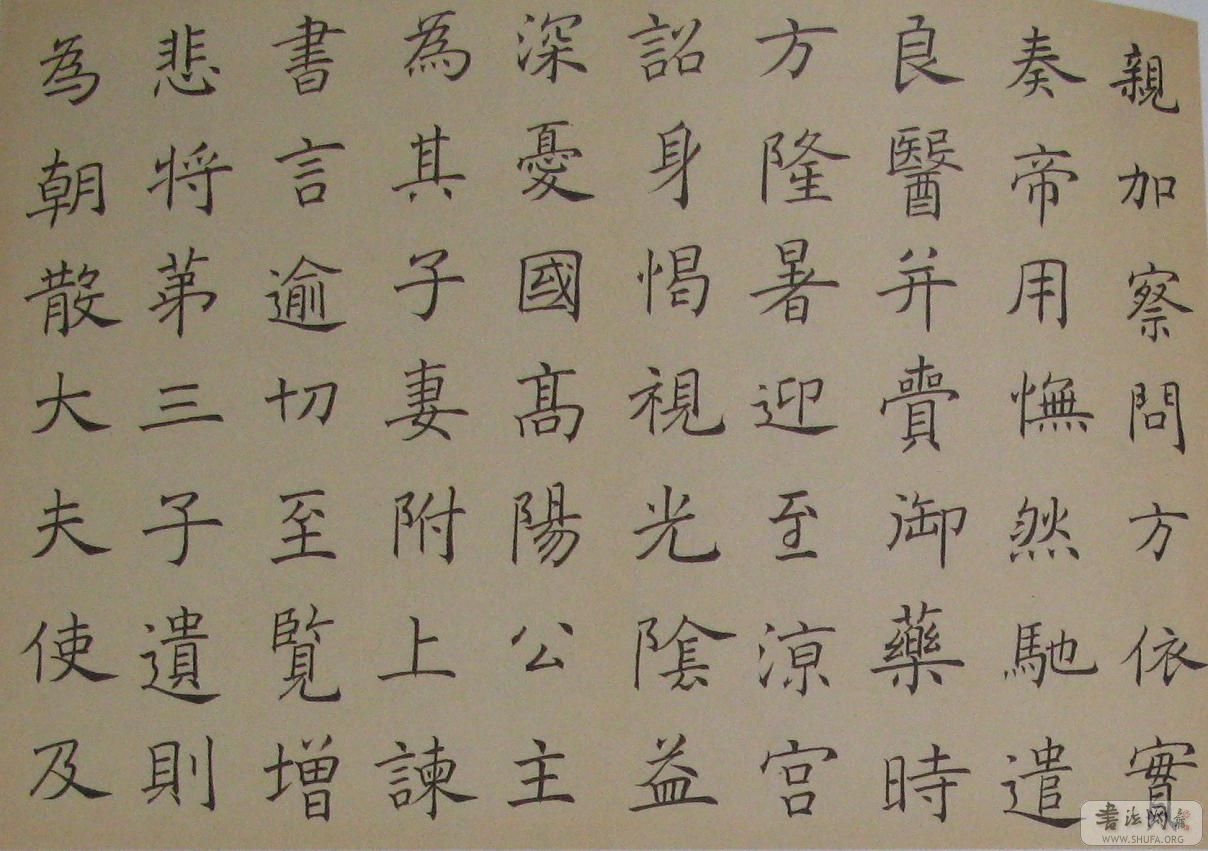 親加察問方依實
奏帝用憮然馳遣
良醫并賷御藥時
方隆暑迎至涼宮
詔身惕視光陰益
深憂國髙陽公主
為其子妻附上諫
書言逾切至覧增
悲將苐三子遺則
為朝散大夫使及
書法网
WWW.SHUFA.ORG